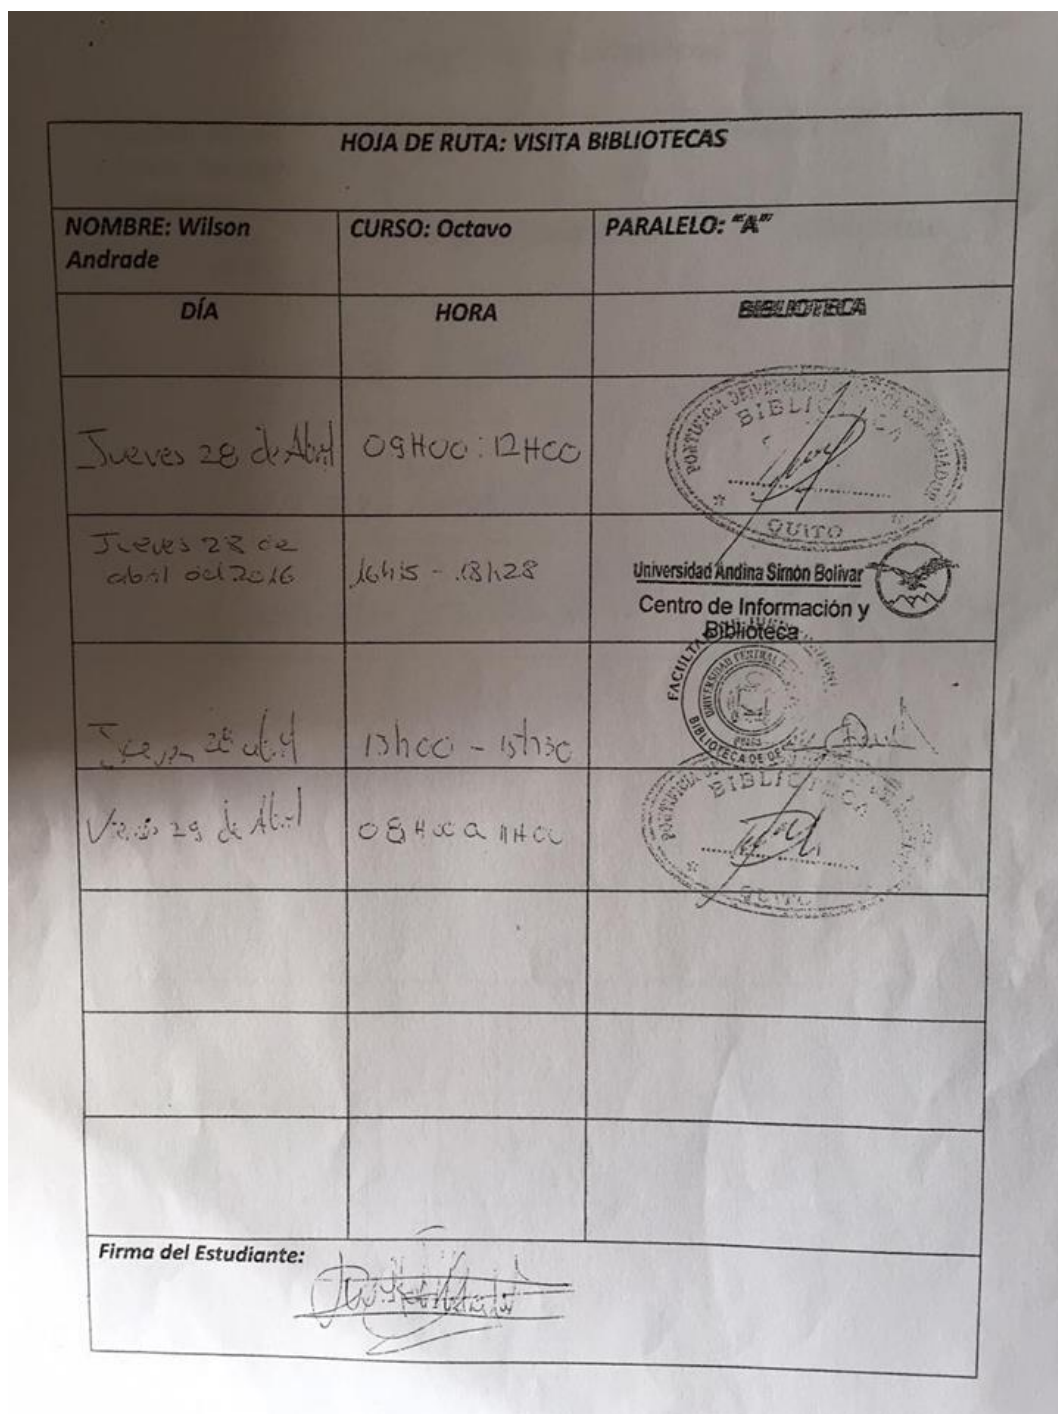 HOJA DE RUTA: VISITA BIBLIOTECAS
NOMBRE: Wilson Andrade
CURSO: Octavo
PARALELO: "A"
DÍA
HORA
BIBLIOTECA
Jueves 28 de Abril
09H00 : 12H00
BIBLIOTECA
QUITO
Jueves 28 de
abril del 2016
16h15 - 18h28
Universidad Andina Simón Bolívar
Centro de Información y
Biblioteca
Jueves 28 abril
13h00 - 15h30
FACULTAD
UNIVERSIDAD CENTRAL
BIBLIOTECA DE
Viernes 29 de Abril
08H00 a 11H00
BIBLIOTECA
QUITO
Firma del Estudiante: